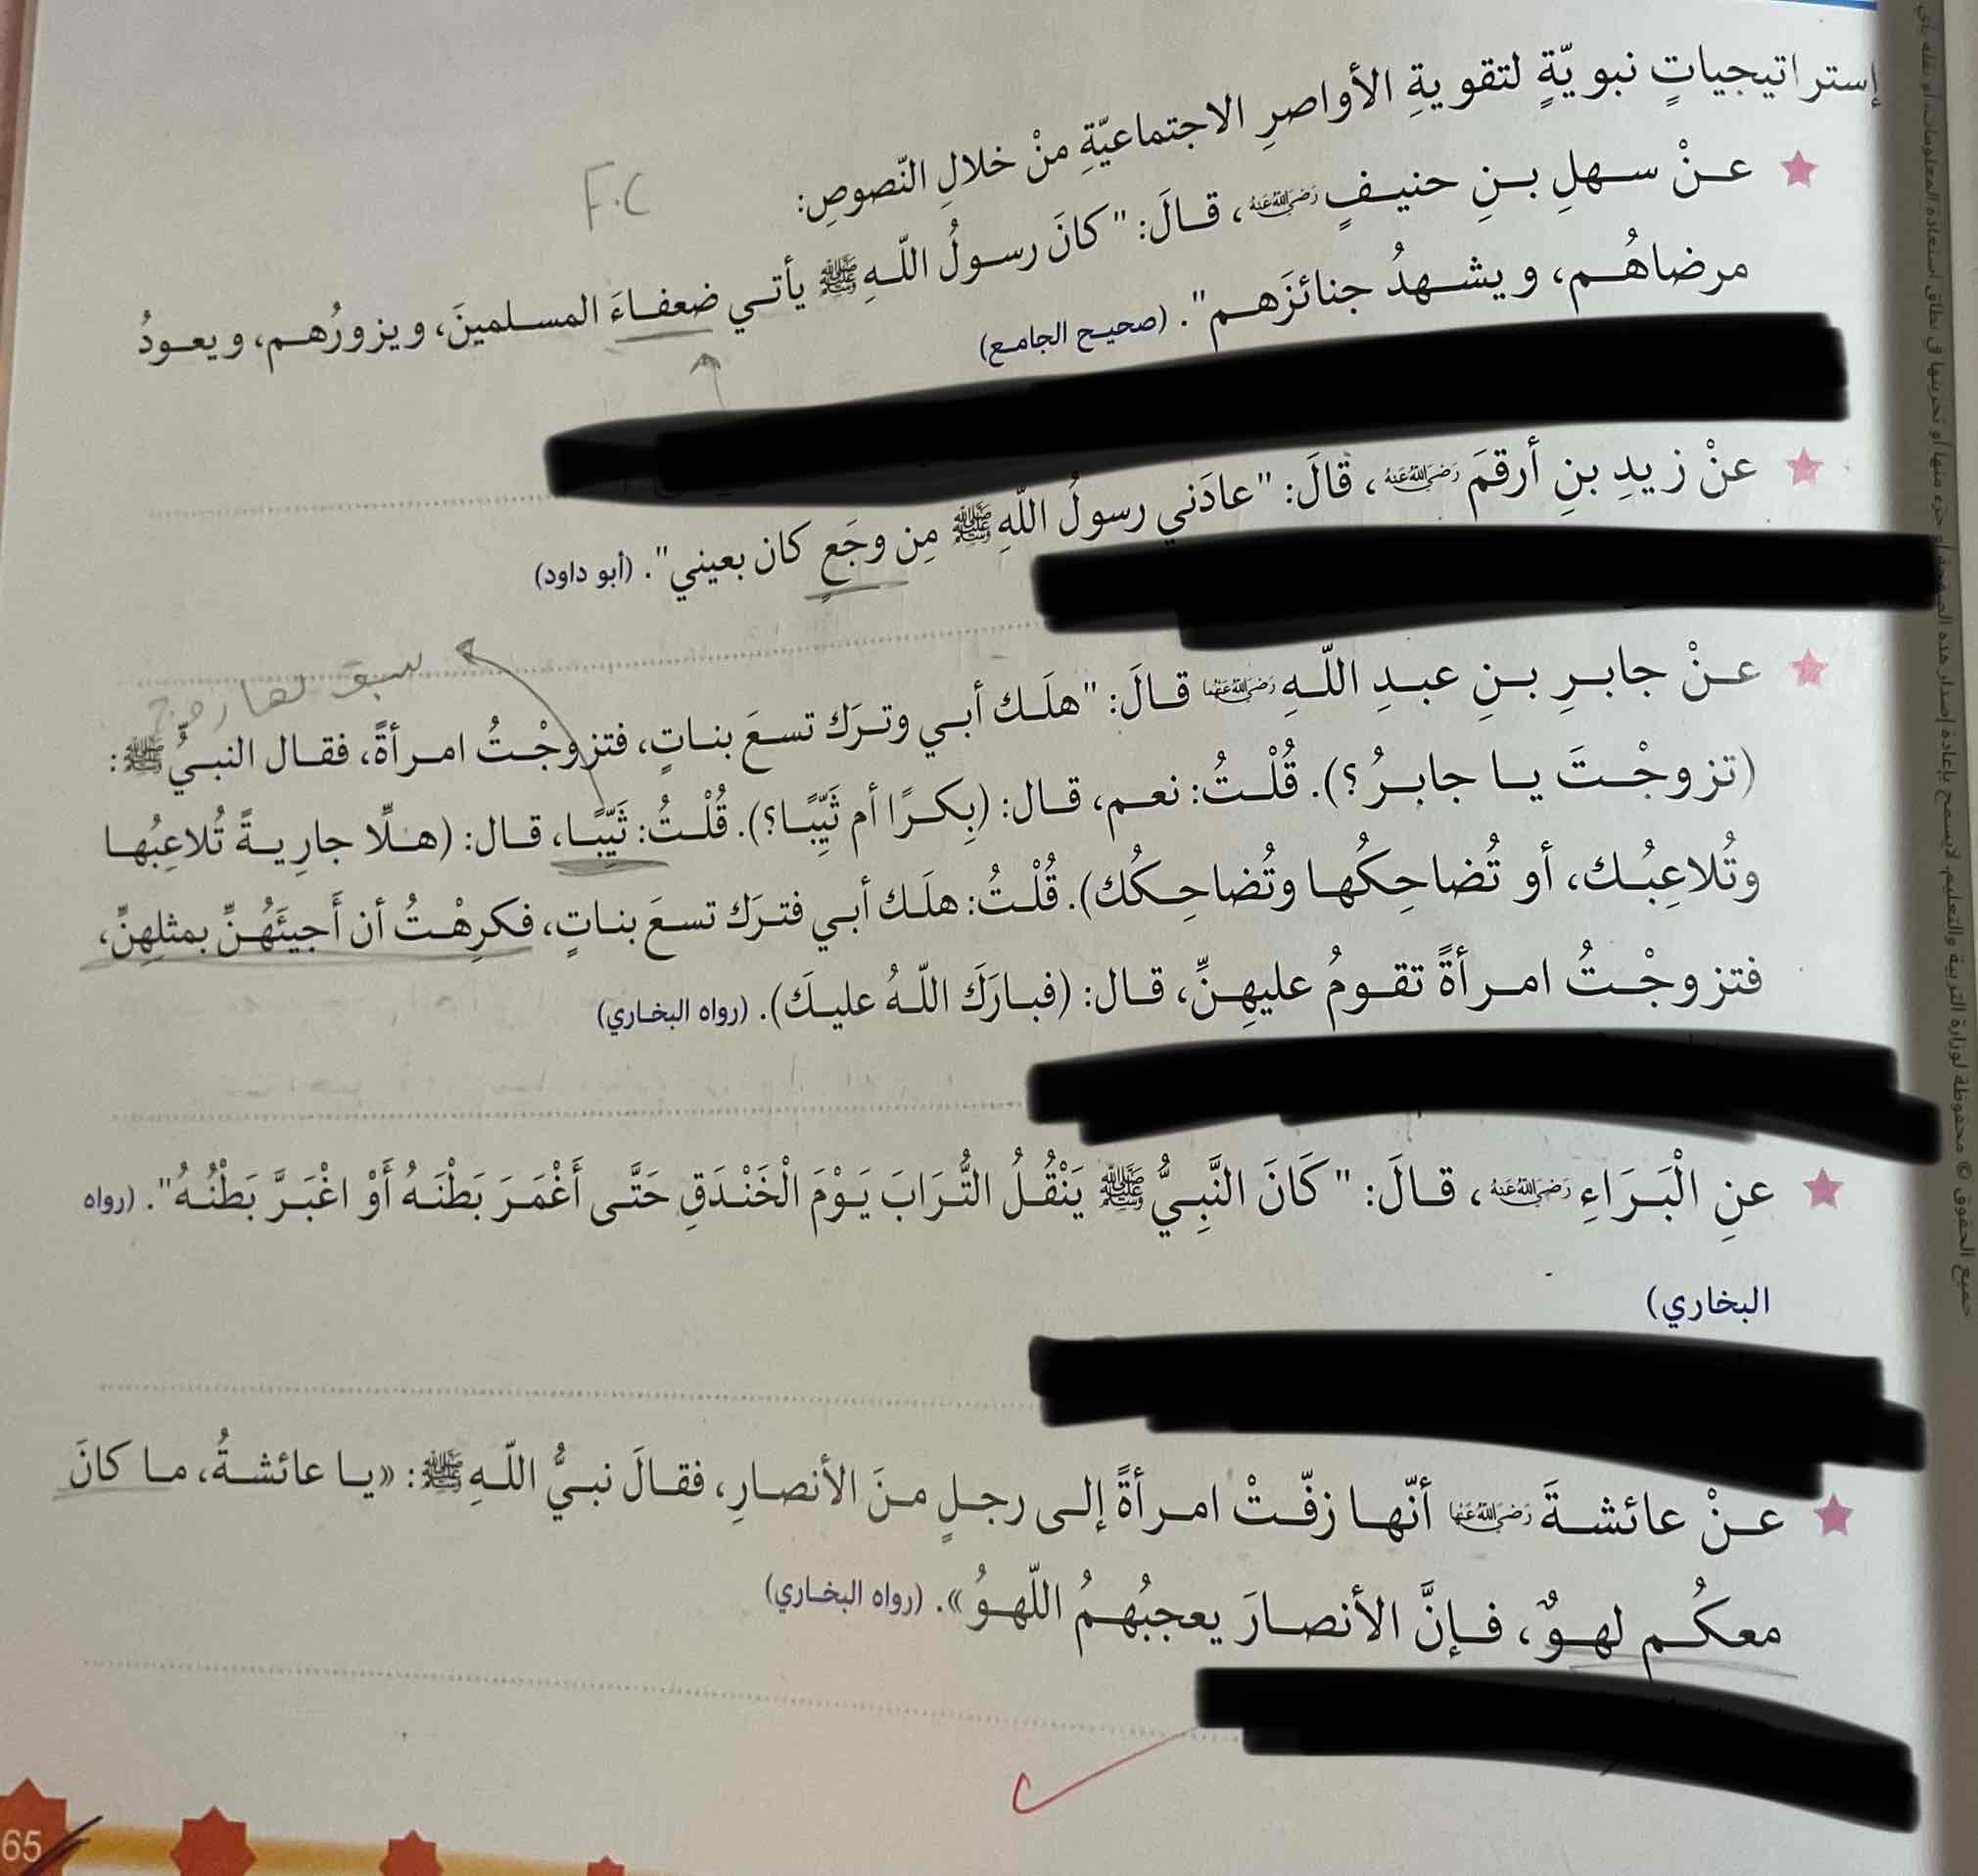 إستراتيجياتٍ نبويّةٍ لتقويةِ الأواصرِ الاجتماعيّةِ منْ خلالِ النّصوصِ:
F.C
عنْ سهلِ بنِ حنيفٍ رَضِيَ اللَّهُ عَنْهُ، قالَ: "كانَ رسولُ اللّهِ ﷺ يأتي ضعفاءَ المسلمينَ، ويزورُهم، ويعودُ
مرضاهُم، ويشهدُ جنائزَهم". (صحيح الجامع)
عنْ زيدِ بنِ أرقمَ رَضِيَ اللَّهُ عَنْهُ، قالَ: "عادَني رسولُ اللّهِ ﷺ مِن وجَعٍ كان بعيني". (أبو داود)
سبق لها
عنْ جابرِ بنِ عبدِ اللّهِ رَضِيَ اللَّهُ عَنْهُمَا قالَ: "هلَك أبي وترَك تسعَ بناتٍ، فتزوجْتُ امرأةً، فقال النبيُّ ﷺ:
(تزوجْتَ يا جابرُ؟). قُلْتُ: نعم، قال: (بِكرًا أم ثَيِّبًا؟). قُلْتُ: ثَيِّبًا، قال: (هلّا جارِيةً تُلاعِبُها
وتُلاعِبُك، أو تُضاحِكُها وتُضاحِكُك). قُلْتُ: هلَك أبي فترَك تسعَ بناتٍ، فكرِهْتُ أن أَجيئَهُنِّ بمثلِهِنِّ،
فتزوجْتُ امرأةً تقومُ عليهِنِّ، قال: (فبارَكَ اللّهُ عليكَ). (رواه البخاري)
عنِ الْبَرَاءِ رَضِيَ اللَّهُ عَنْهُ، قالَ: "كَانَ النَّبِيُّ ﷺ يَنْقُلُ التُّرَابَ يَوْمَ الْخَنْدَقِ حَتَّى أَغْمَرَ بَطْنَهُ أَوْ اغْبَرَّ بَطْنُهُ". (رواه
البخاري)
عنْ عائشةَ رَضِيَ اللَّهُ عَنْهَا أنّها زفّتْ امرأةً إلى رجلٍ منَ الأنصارِ، فقالَ نبيُّ اللّهِ ﷺ: «يا عائشةُ، ما كانَ
معكُم لهوٌ، فإنَّ الأنصارَ يعجبُهمُ اللّهوُ». (رواه البخاري)
65